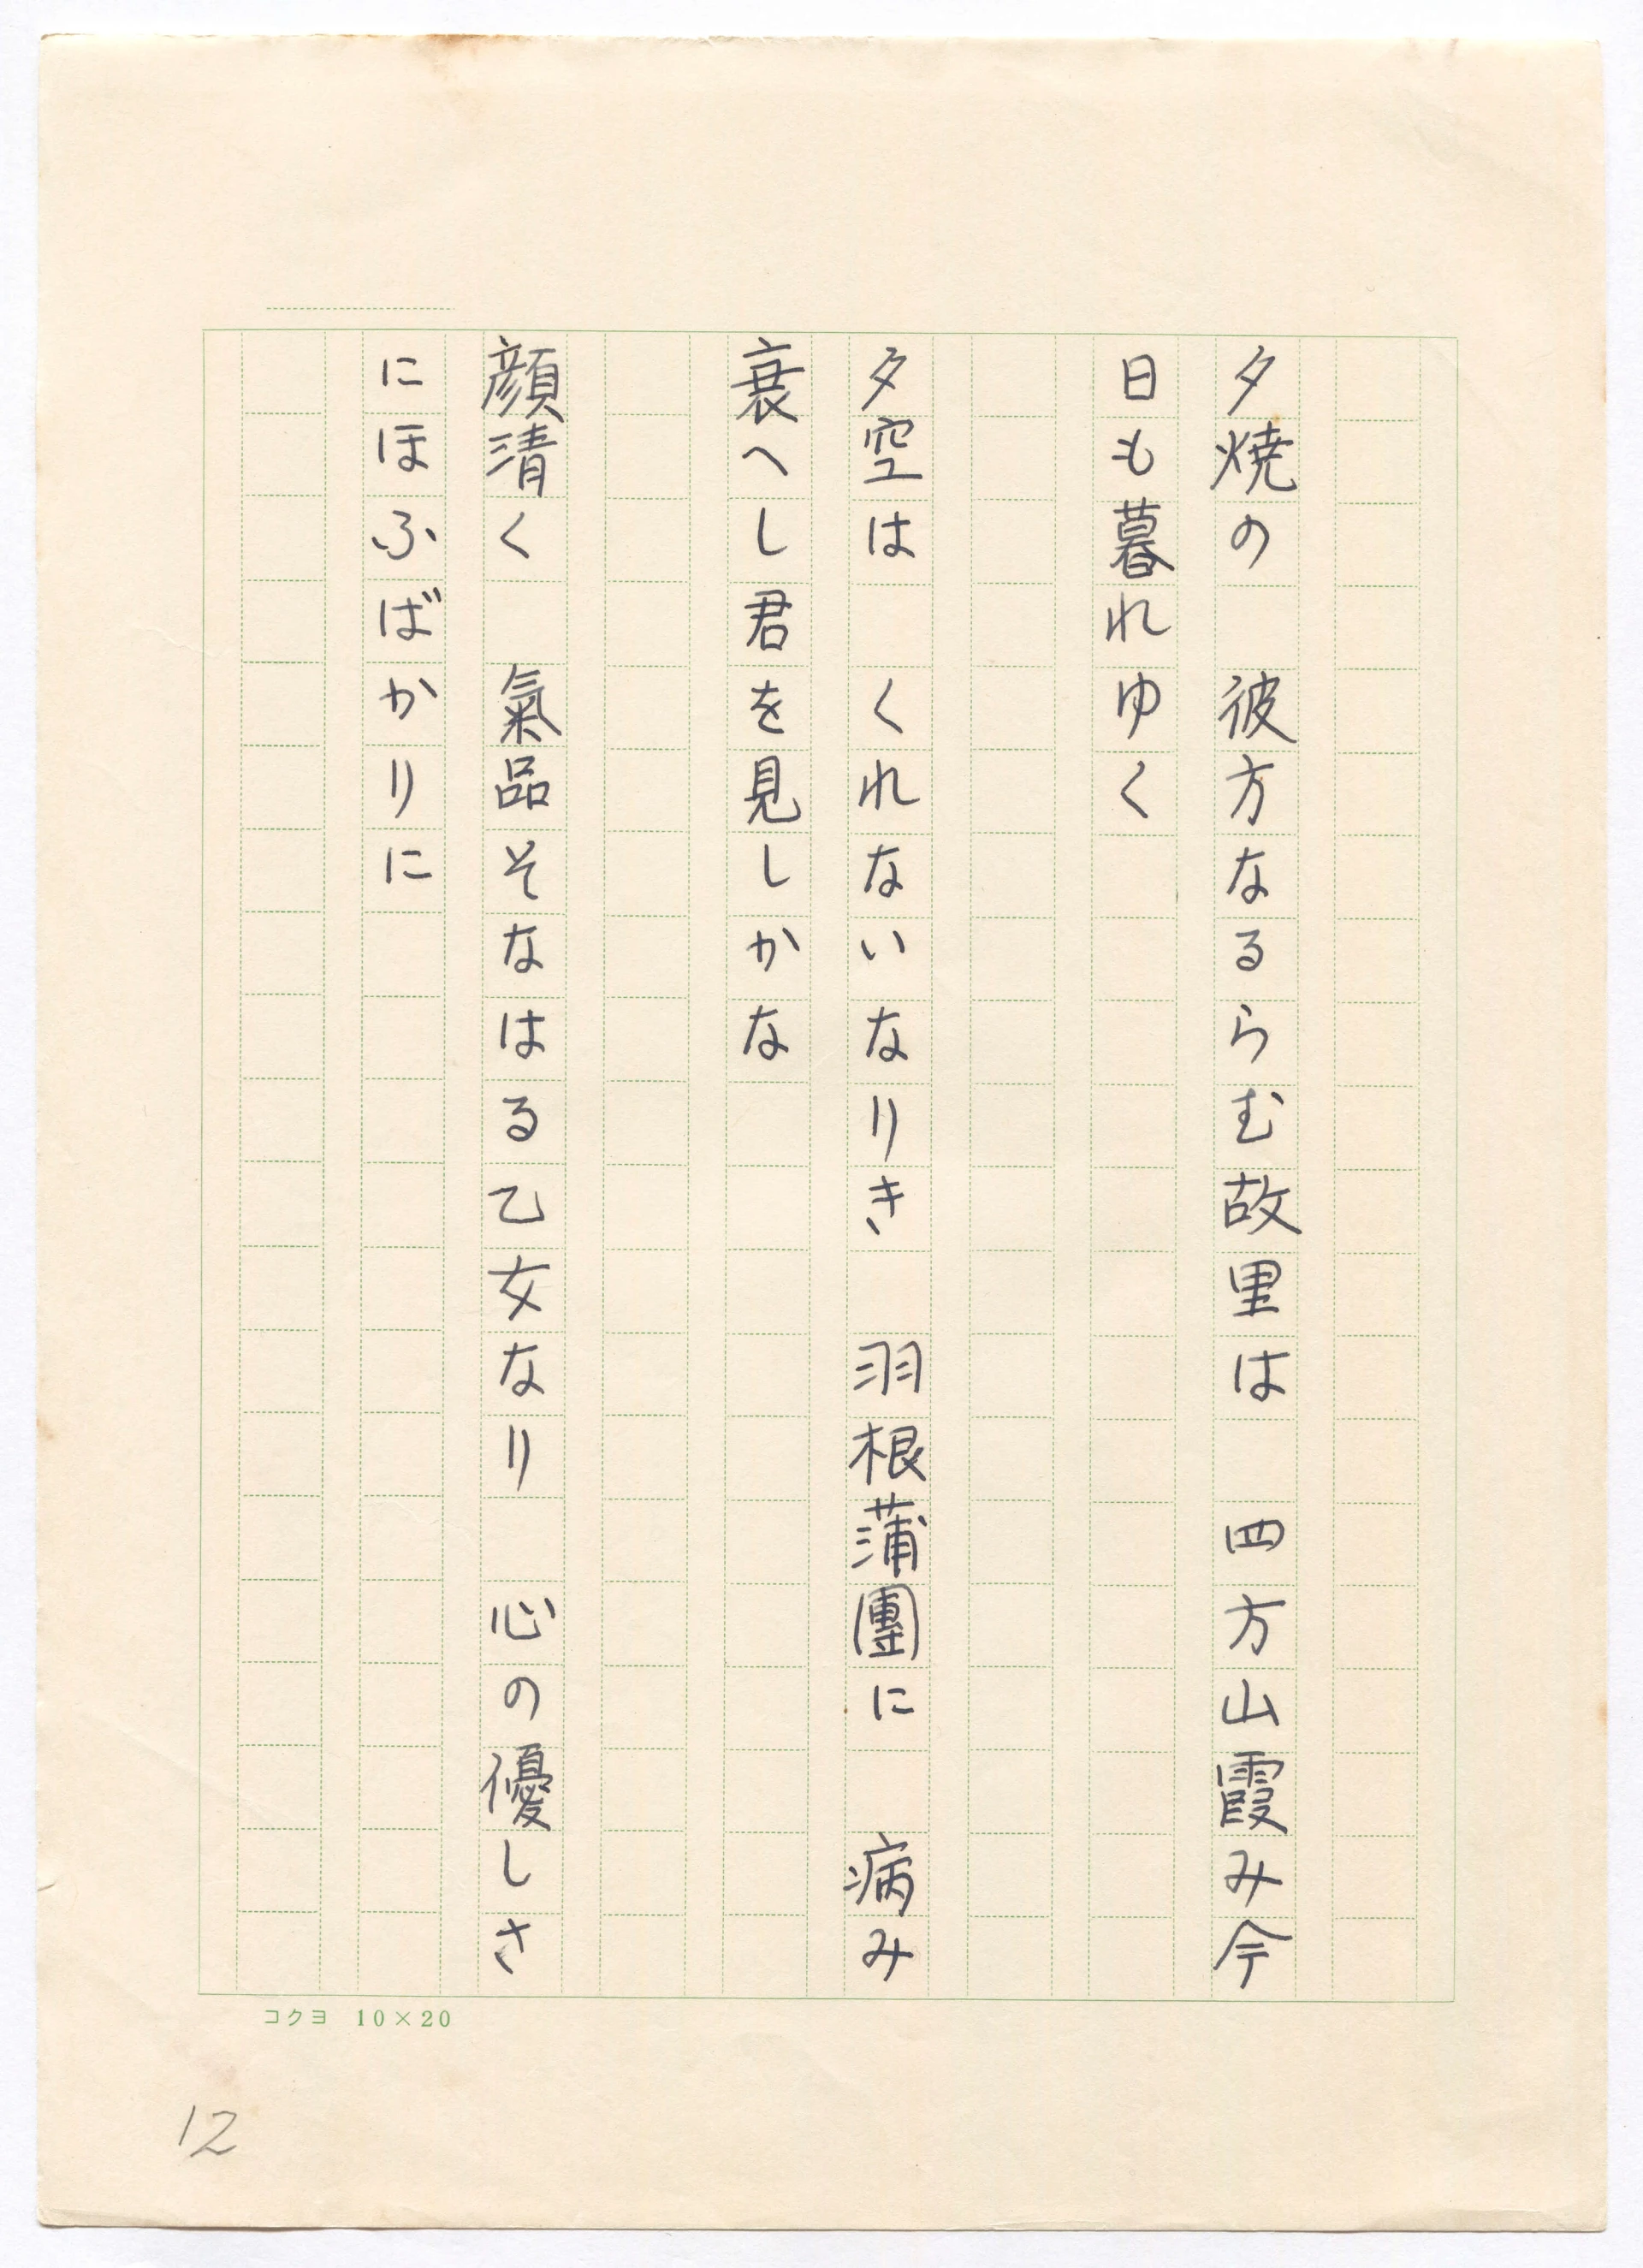 夕焼の　彼方なるらむ故里は　四方山霞み今
日も暮れゆく
夕空は　くれないなりき　羽根蒲團に　病み
衰へし君を見しかな
顔清く　氣品そなはる乙女なり　心の優しさ
にほふばかりに
コクヨ 10×20
12